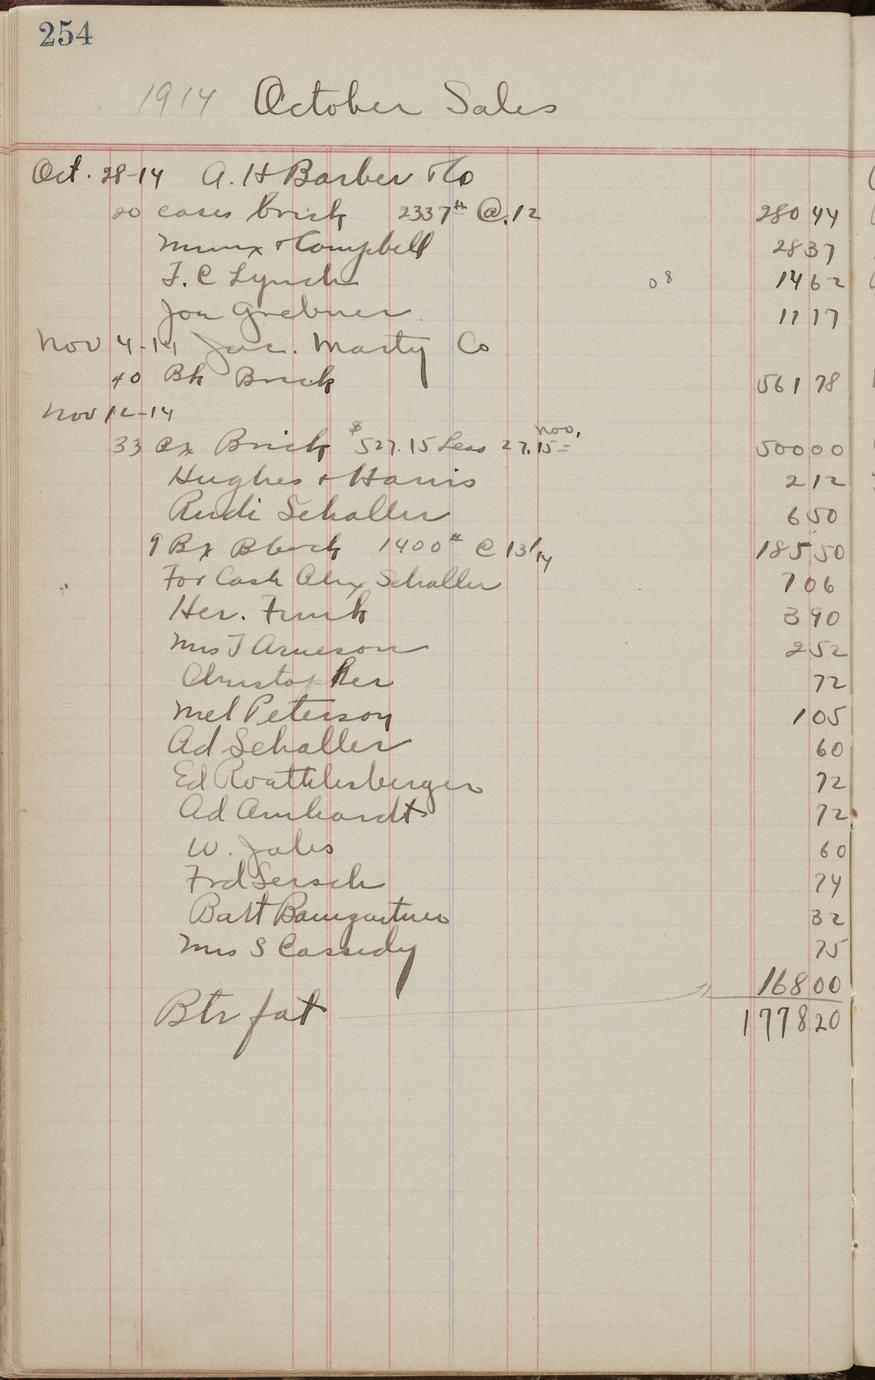 254
1914 October Sales
Oct. 28-14 A. H Barber & Co
20 cases brick 2337# @.12 280 44
Munx & Campbell 28 37
F. C Lynch 08 14 62
Joa Grebner 11 17
Nov 4-14 Jac. Marty Co
40 Bx Brick 561 78
Nov 12-14
33 Bx Brick $527.15 Less 27.15 = Nov, 500 00
Hughes & Harris 2 12
Rudi Schaller 6 50
9 Bx Block 1400# @ 13 1/4 185 50
For Cash Alex Schaller 7 06
Her. Funk 3 90
Mrs J Arneson 2 52
Christopher 72
Mel Peterson 1 05
Ad Schaller 60
Ed Roethlisberger 72
Ad Arnhardt 72
W. Jabs 60
Frd Sersch 74
Bart Baumgartner 32
Mrs S Cassidy 75
168 00
Btr fat 1778 20